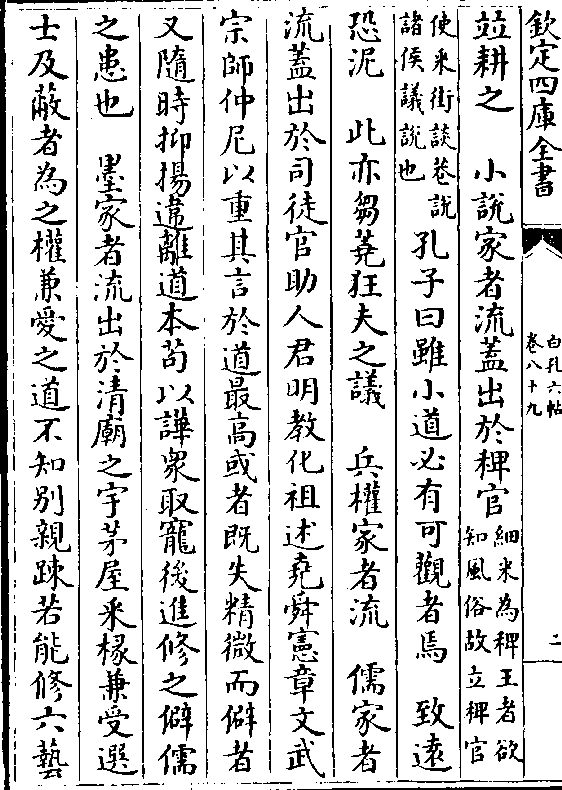 欽定四庫全書
白孔六帖
卷八十九
二
竝耕之　小說家者流蓋出於稗官
細米為稗王者欲
知風俗故立稗官
使采街談巷說
諸侯議說也
孔子曰雖小道必有可觀者焉　致遠
恐泥　此亦芻蕘狂夫之議　兵權家者流　儒家者
流蓋出於司徒官助人君明教化祖述堯舜憲章文武
宗師仲尼以重其言於道最高或者既失精微而僻者
又隨時抑揚違離道本苟以譁衆取寵後進修之僻儒
之患也　墨家者流出於清廟之宇茅屋釆椽兼受選
士及蔽者為之權兼愛之道不知別親踈若能修六藝